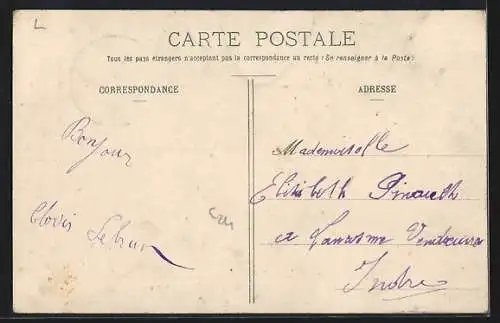 L
CARTE POSTALE
Tous les pays étrangers n'acceptent pas la correspondance au recto (Se renseigner à la Poste)
CORRESPONDANCE
ADRESSE
Bonjour
Clovis Lebrun
Mademoiselle
Elisabeth Pinault
Indre